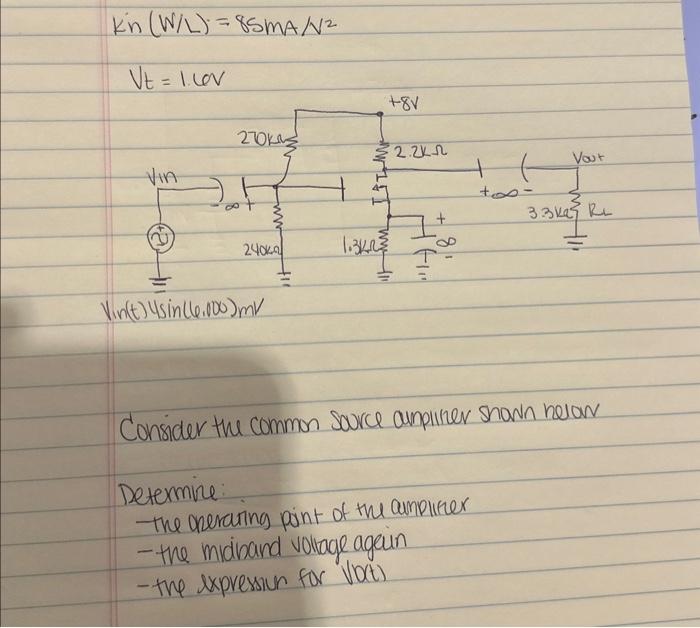 k'n (W/L) = 85mA/V²
Vt = 1.6V
+8V
270kΩ
2.2kΩ
Vin
Vout
- ∞ +
+ ∞ -
3.3kΩ RL
240kΩ
1.3kΩ
+
∞
-
Vin(t) 4sin(6,000)mV
Consider the common source amplifier shown below
Determine:
- the operating point of the amplifier
- the midband voltage again
- the expression for Vo(t)